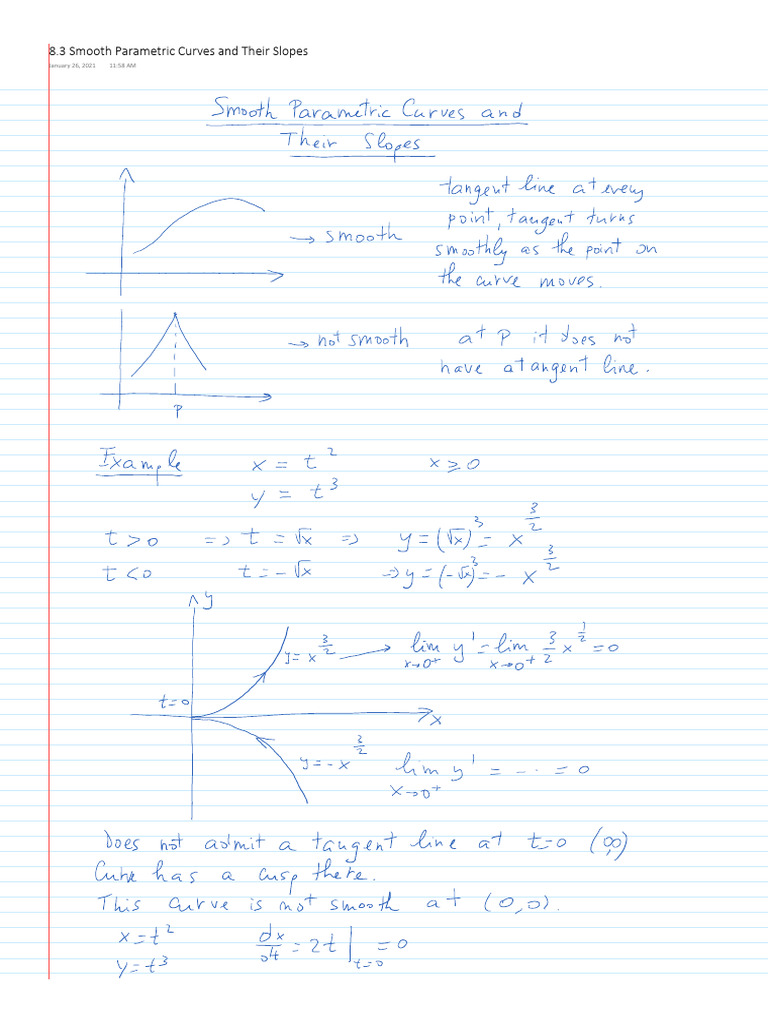 8.3 Smooth Parametric Curves and Their Slopes
January 26, 2021 11:58 AM
Smooth Parametric Curves and
Their Slopes
tangent line at every
point, tangent turns
→ smooth
smoothly as the point on
the curve moves.
→ not smooth at P it does not
have a tangent line.
P
Example x = t² x ≥ 0
y = t³
t > 0 => t = √x => y = (√x)³ = x^{3/2}
t < 0 t = -√x => y = (-√x)³ = - x^{3/2}
y
y = x^{3/2} → lim_{x→0⁺} y' = lim_{x→0⁺} 3/2 x^{1/2} = 0
t=0
x
y = -x^{3/2} lim_{x→0⁺} y' = -·· = 0
Does not admit a tangent line at t=0 (0,0)
Curve has a cusp there.
This curve is not smooth at (0,0).
x = t² dx/dt = 2t |_{t=0} = 0
y = t³